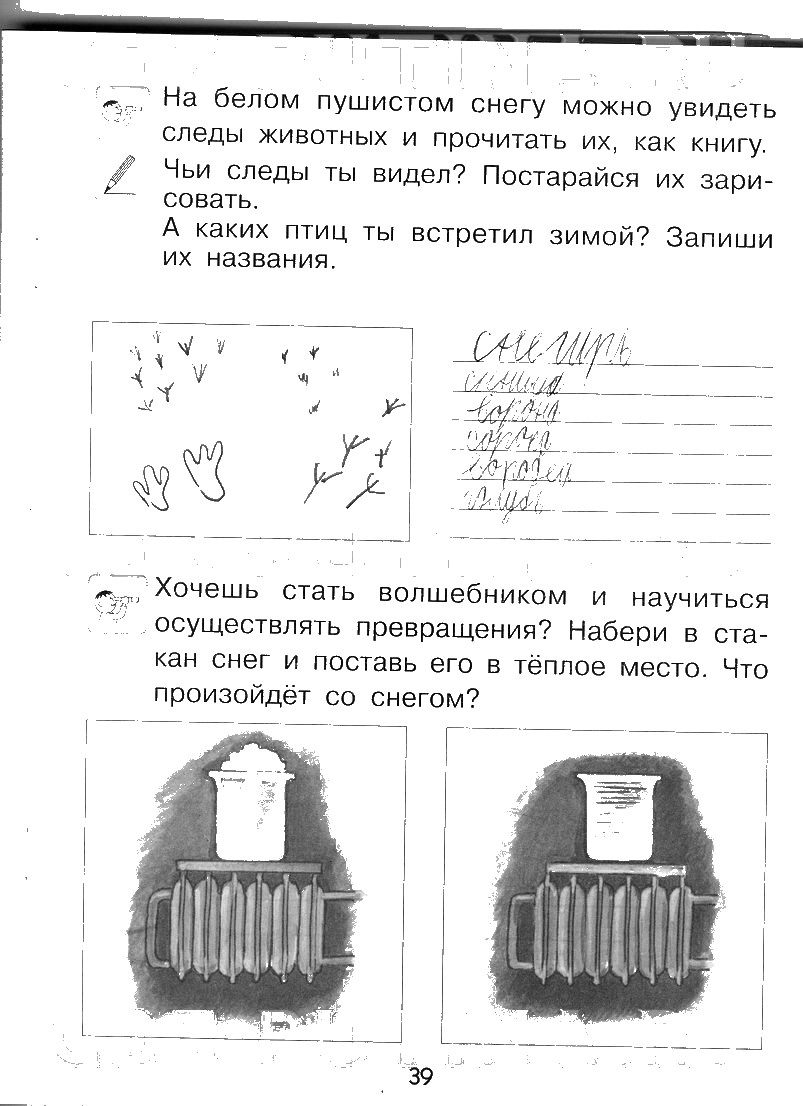 На белом пушистом снегу можно увидеть
следы животных и прочитать их, как книгу.
Чьи следы ты видел? Постарайся их зари-
совать.
А каких птиц ты встретил зимой? Запиши
их названия.
снегирь
синица
ворона
сорока
воробей
голубь
Хочешь стать волшебником и научиться
осуществлять превращения? Набери в ста-
кан снег и поставь его в тёплое место. Что
произойдёт со снегом?
39